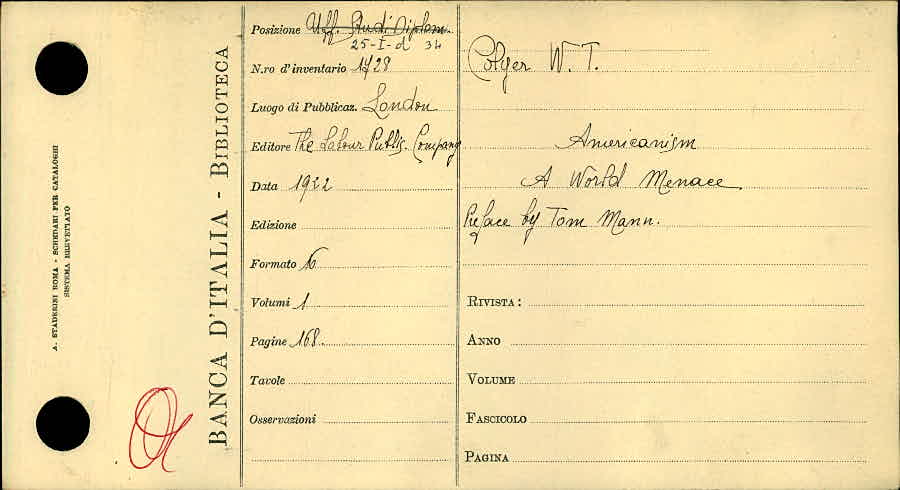 A. STADERINI ROMA - SCHEDARI PER CATALOGHI
SISTEMA BREVETTATO
BANCA D'ITALIA - BIBLIOTECA
Posizione Uff. Studi Diplom.
25-I-d 34
N.ro d'inventario 1728
Luogo di Pubblicaz. London
Editore The Labour Public. Company
Data 1922
Edizione
Formato 16
Volumi 1
Pagine 168
Tavole
Osservazioni
Colyer W. T.
Americanism
A World Menace
Preface by Tom Mann.
RIVISTA:
ANNO
VOLUME
FASCICOLO
PAGINA